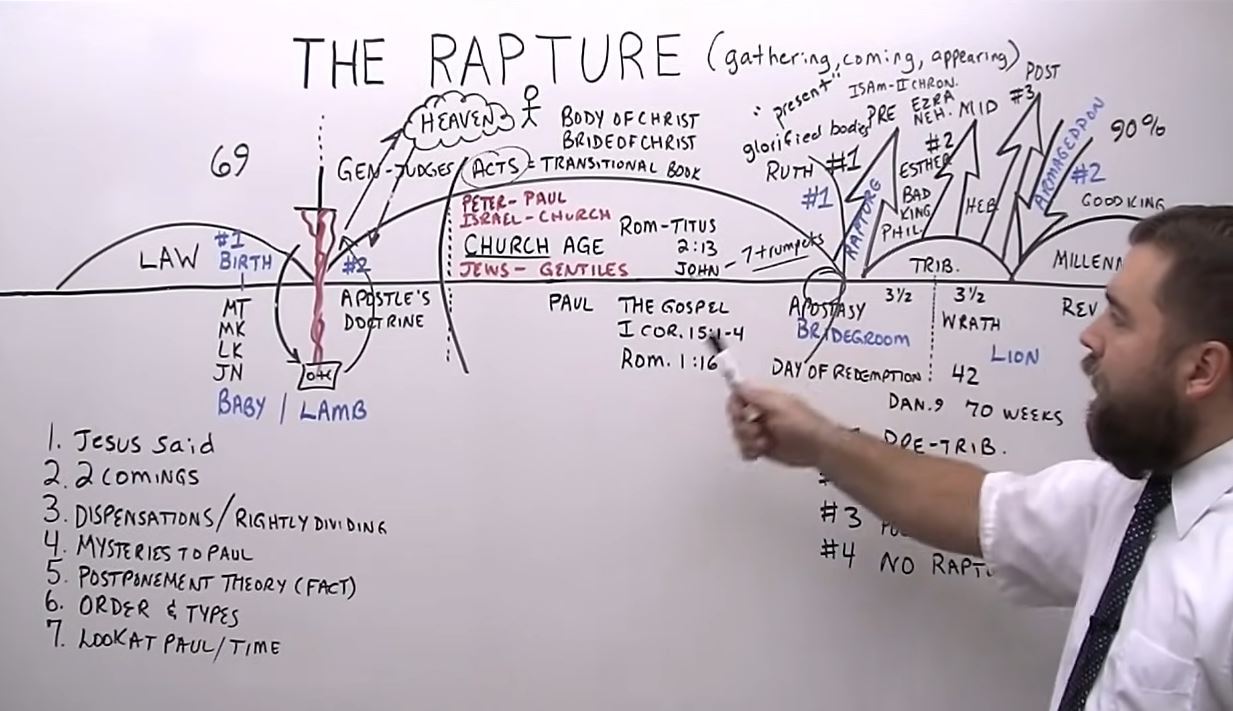 THE RAPTURE (gathering, coming, appearing)
"present"
ISAM-II CHRON.
POST
#3
glorified bodies
PRE
EZRA
NEH.
MID
HEAVEN
BODY OF CHRIST
BRIDE OF CHRIST
69
GEN-JUDGES
ACTS = TRANSITIONAL BOOK
RUTH
#1
#1
RAPTURE
#2
ESTHER
BAD
KING
PHIL
HEB
ARMAGEDDON
#2
90%
GOOD KING
LAW
#1
BIRTH
#2
PETER-PAUL
ISRAEL-CHURCH
CHURCH AGE
JEWS-GENTILES
ROM-TITUS
2:13
JOHN - 7 trumpets
TRIB.
MILLENN
MT
MK
LK
JN
APOSTLE'S
DOCTRINE
PAUL
THE GOSPEL
I COR. 15:1-4
ROM. 1:16
APOSTASY
BRIDEGROOM
DAY OF REDEMPTION
3½
3½
WRATH
LION
42
REV
DAN. 9 70 WEEKS
BABY / LAMB
1. Jesus said
2. 2 COMINGS
3. DISPENSATIONS/RIGHTLY DIVIDING
4. MYSTERIES TO PAUL
5. POSTPONEMENT THEORY (FACT)
6. ORDER & TYPES
7. LOOK AT PAUL/TIME
PRE-TRIB.
#3
#4 NO RAPT